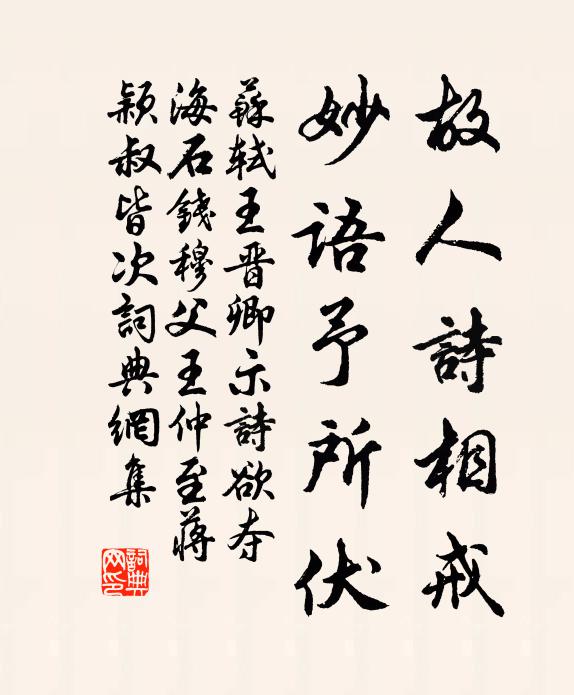 故人詩相戒
妙語予所伏
蘇軾王晋卿示詩欲夺
海石錢穆父王仲至蔣
穎叔皆次詞典網集
詞典网印